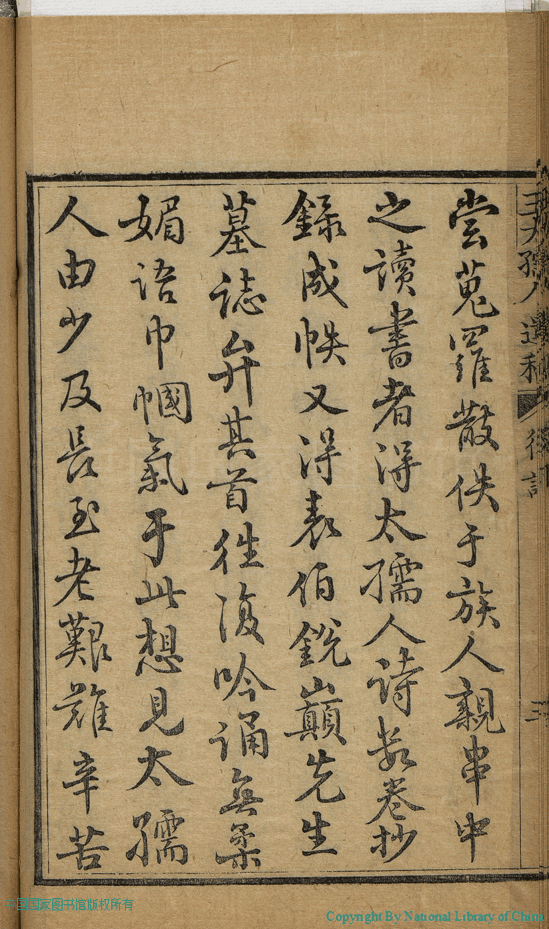 嘗蒐羅散佚于族人親串中
之讀書者得太孺人詩數卷抄
錄成帙又得表伯銳巔先生
墓誌弁其首往復吟誦無柔
媚語巾幗氣于此想見太孺
人由少及長至老艱難辛苦
後記
三
中国国家图书馆版权所有
Copyright By National Library of China